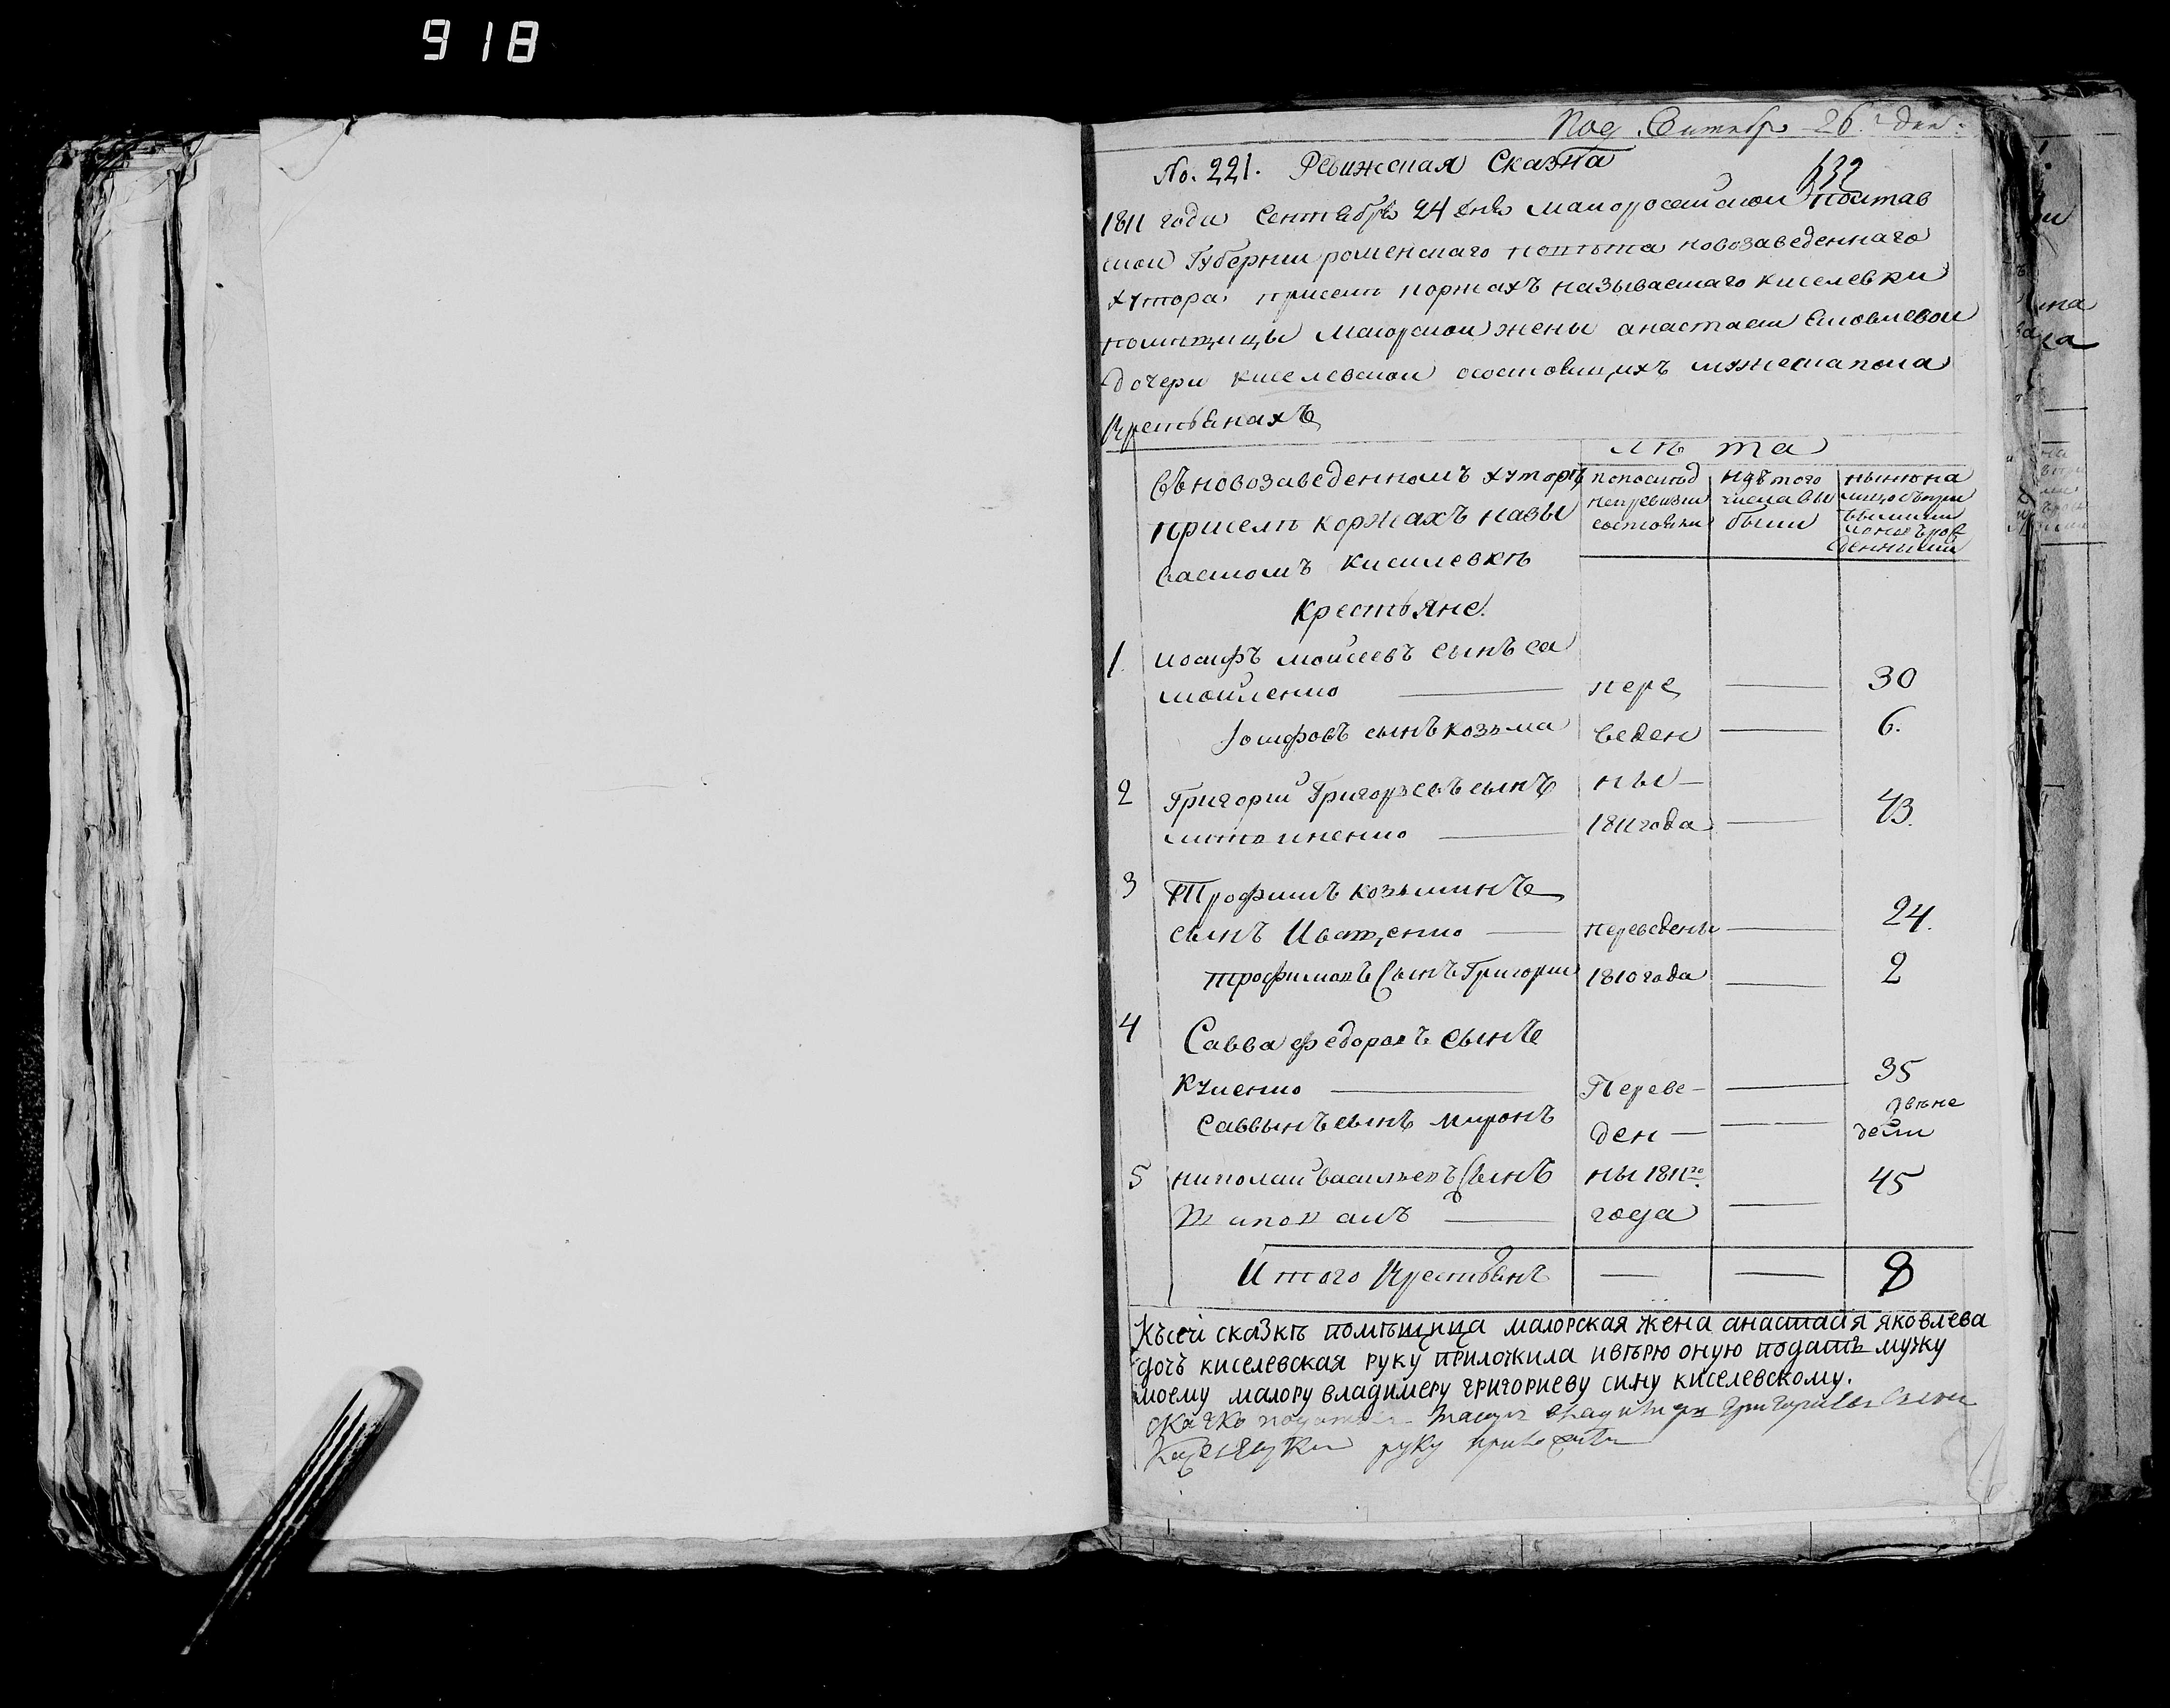 918
Под. Сентебр 26го дня.
No. 221. Ревижская Сказка
632
1811 года Сентебря 24 дня малоросейской полтав
ской Губернии роменского повъта новозаведеннаго
хутора присели коржахъ называемаго киселевки
помъщицы маиорской жены анастасеи Ековлевой
дочери киселевской осостоящихъ мужеска пола
крестьенахъ
лѣта
Въновозаведенномъ хуторѣ
приселѣ коржахъ назы
ваемомъ киселевкѣ
попослѣд
ней ревизии
состояли
изъ того
числа вы
были
нынѣ на
лицо съпри
былыми
и опосъ рож
денными
крестьяне.
1. иосифъ моисеевъ сынъ са
мойленко — пере — 30
Иосифовъ сынъ козьма веден — 6.
2 Григорий Григорьевъ сынъ ны —
литвиненко — 1811 года — 43.
3 Трофимъ козьминъ
сынъ Иващенко — переведены — 24.
трофимовъ Сынъ Григорий 1810 года — 2
4 Савва федоровъ сынъ
куценко — Переве — — 35
Саввынъ сынъ миронъ ден — — двѣ не
дели
5 николай васильевъ Сынъ ны 1811го 45
шаповалъ — года —
Итого крестьенъ — — 8
Късеи сказкъ помъщица маиорская жена анастасия яковлева
дочъ киселевская руку приложила ивърю оную подать мужу
моему маиору владимеру григориеву сину киселевскому.
маиоръ владимеръ григориевъ синъ
руку приложилъ